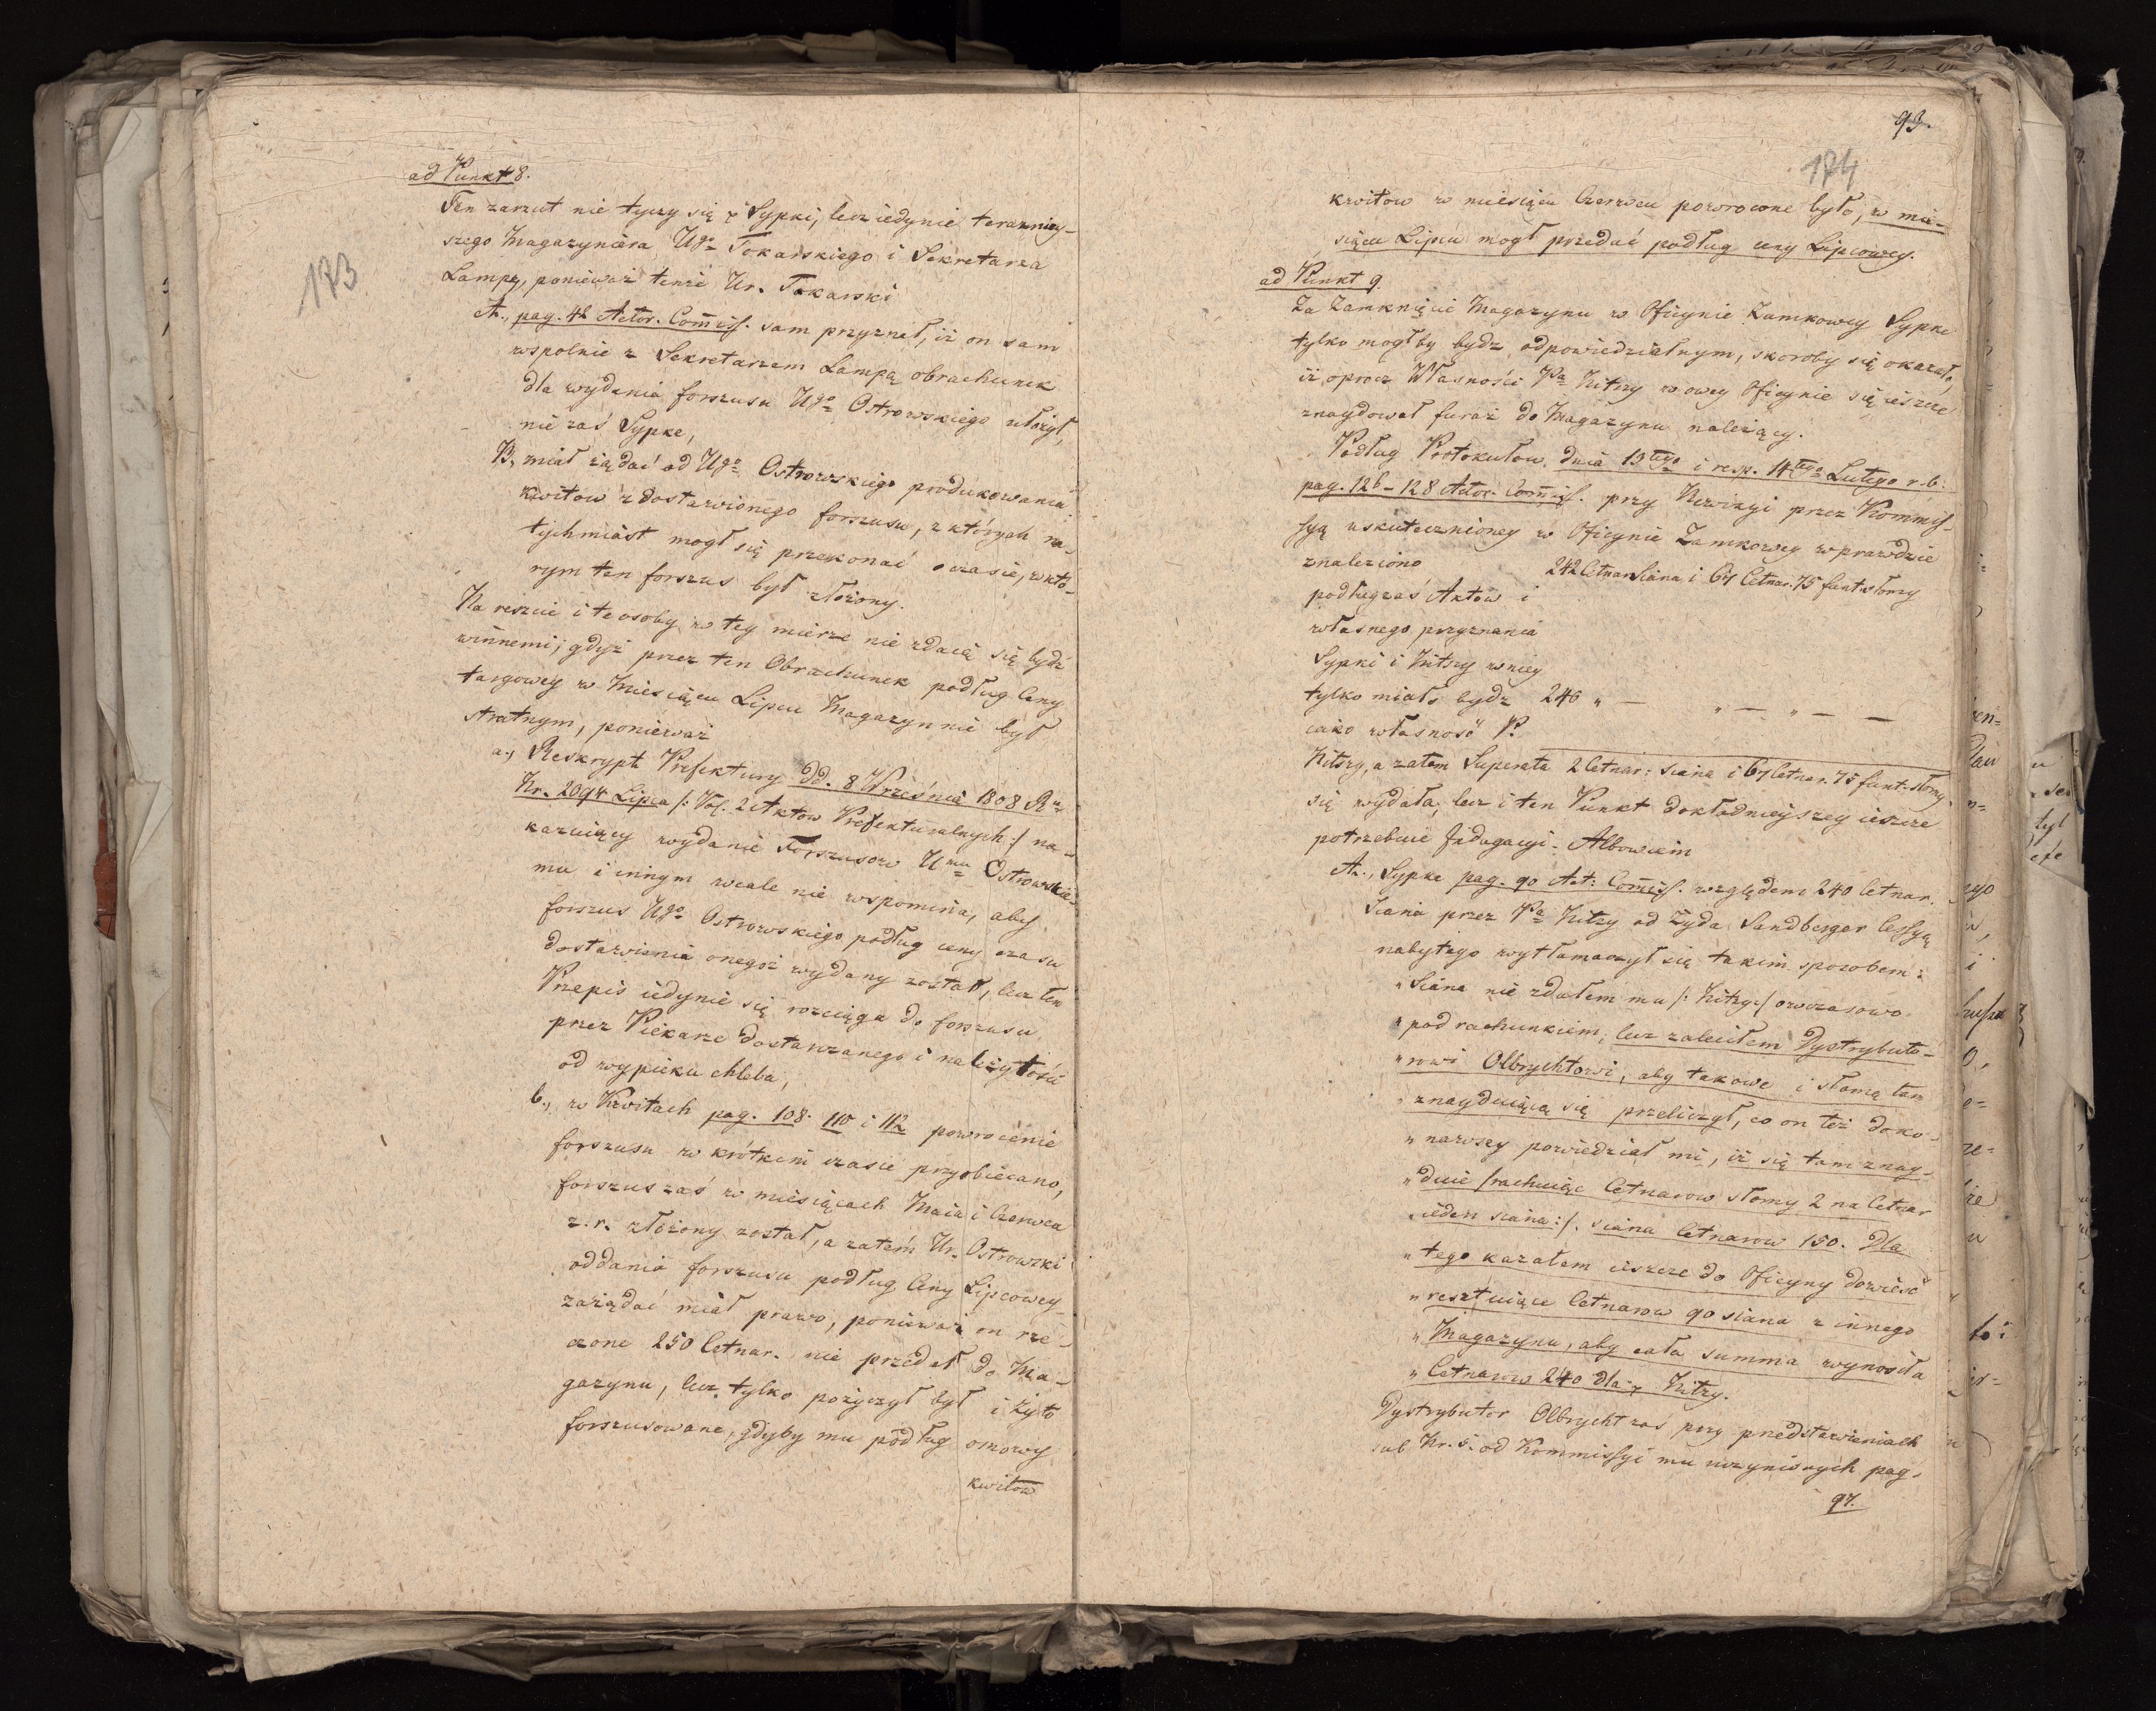 ad Punkt 8.
173
Ten zarzut nie tyczy się Sypki, lecz iedynie terazniey-
szego Magazyniera Ugo Tokarskiego i Sekretarza
Lampę, ponieważ tenże Ur. Tokarski
A., pag. 42 Actor. Comiss. sam przyznał, iż on sam
wspolnie z Sekretarzem Lampą obrachunek
dla wydania forszusu Ugo Ostrowskiego ułożył,
nie zaś Sypke,
B, miał żądać od Ugo Ostrowskiego produkowania
kwitow z dostawionego forszusu, z których na-
tychmiast mogł się przekonać o czasie, w któ-
rym ten forszus był złożony.
Na reszcie i te osoby w tey mierze nie zdaią się bydź
winnemi; gdyż przez ten Obrachunek podług Ceny
targowey w Miesiącu Lipcu Magazyn nie był
stratnym, ponieważ
a., Reskrypt Prefektury dd. 8 Września 1808 R.
Nr. 2094 Lipca /: Vol. 2 Aktow Prefekturalnych :/ na-
kazuiący wydanie Forszusow Umu Ostrowskie-
mu i innym wcale nie wspomina, aby
forszus Ugo Ostrowskiego podług ceny czasu
dostawienia onegoż wydany został, lecz ten
Przepis iedynie się rozciąga do forszusu
przez Piekarze dostarczanego i należytości
od wypieku chleba,
b., w Kwitach pag. 108. 110 i 112 powrocenie
forszusu w krótkim czasie przyobiecano,
forszus zaś w miesiącach Maia i Czerwca
z. r. złożony został, a zatem Ur. Ostrowski
oddania forszusu podług Ceny Lipcowey
zażądać miał prawo, ponieważ on rze-
czone 250 Cetnar. nie przedał do Ma-
gazynu, lecz tylko pożyczył był i żyto
forszusowane, gdyby mu podług osnowy
kwitow
93.
174
kwitow w miesiącu Czerwcu powrocone było, w mie-
siącu Lipcu mogł przedać podług ceny Lipcowey.
ad Punkt 9.
Za Zamknięcie Magazynu w Oficynie Zamkowey Sypke
tylko mogłby bydz odpowiedzialnym, skoroby się okazało,
iż oprocz Własności Pa Kitzy w owey Oficynie się ieszcze
znaydował furaż do Magazynu należący.
Podług Protokułow dnia 13tego i resp. 14tego Lutego r. b:
pag. 126-128 Actor. Comiss. przy Rewizyi przez Kommis-
syą uskutecznioney w Oficynie Zamkowey wprawdzie
znaleziono 242 Cetnar siana i 67 Cetnar. 75 funt. słomy
podług zaś Aktow i
własnego przyznania
Sypki i Kitzy w niey
tylko miało bydz 240 " — " — " — —
iako własność P.
Kitzy, a zatem Superata 2 Cetnar: siana i 67 Cetnar. 75 funt. słomy
się wydała; lecz i ten Punkt dokładnieyszey ieszcze
potrzebuie Indagacyi. Albowiem
A., Sypke pag. 90 Act: Comiss. względem 240 Cetnar.
Siana przez Pa Kitzy od Żyda Sandberger Cessyą
nabytego wytłamaczył się takim sposobem:
" Siana nie zdałem mu /: Kitzy :/ owczasowo
" pod rachunkiem, lecz zaleciłem Dystrybuto-
" rowi Olbrychtowi, aby takowe i słomą tam
" znayduiącą się przeliczył, co on też doko-
" nawszy powiedział mi, iż się tam znay-
" duie /rachuiąc Cetnarow słomy 2 na Cetnar
" ieden siana :/. siana Cetnarow 150. Dla
" tego kazałem ieszcze do Oficyny dowieść
" resztuiące Cetnarow 90 siana z innego
" Magazynu, aby cała summa wynosiła
" Cetnarow 240 dla Kitzy.
Dystrybutor Olbrycht zaś przy przedstawieniach
sub Nr. 5. od Kommissyi mu uczynionych pag.
97.